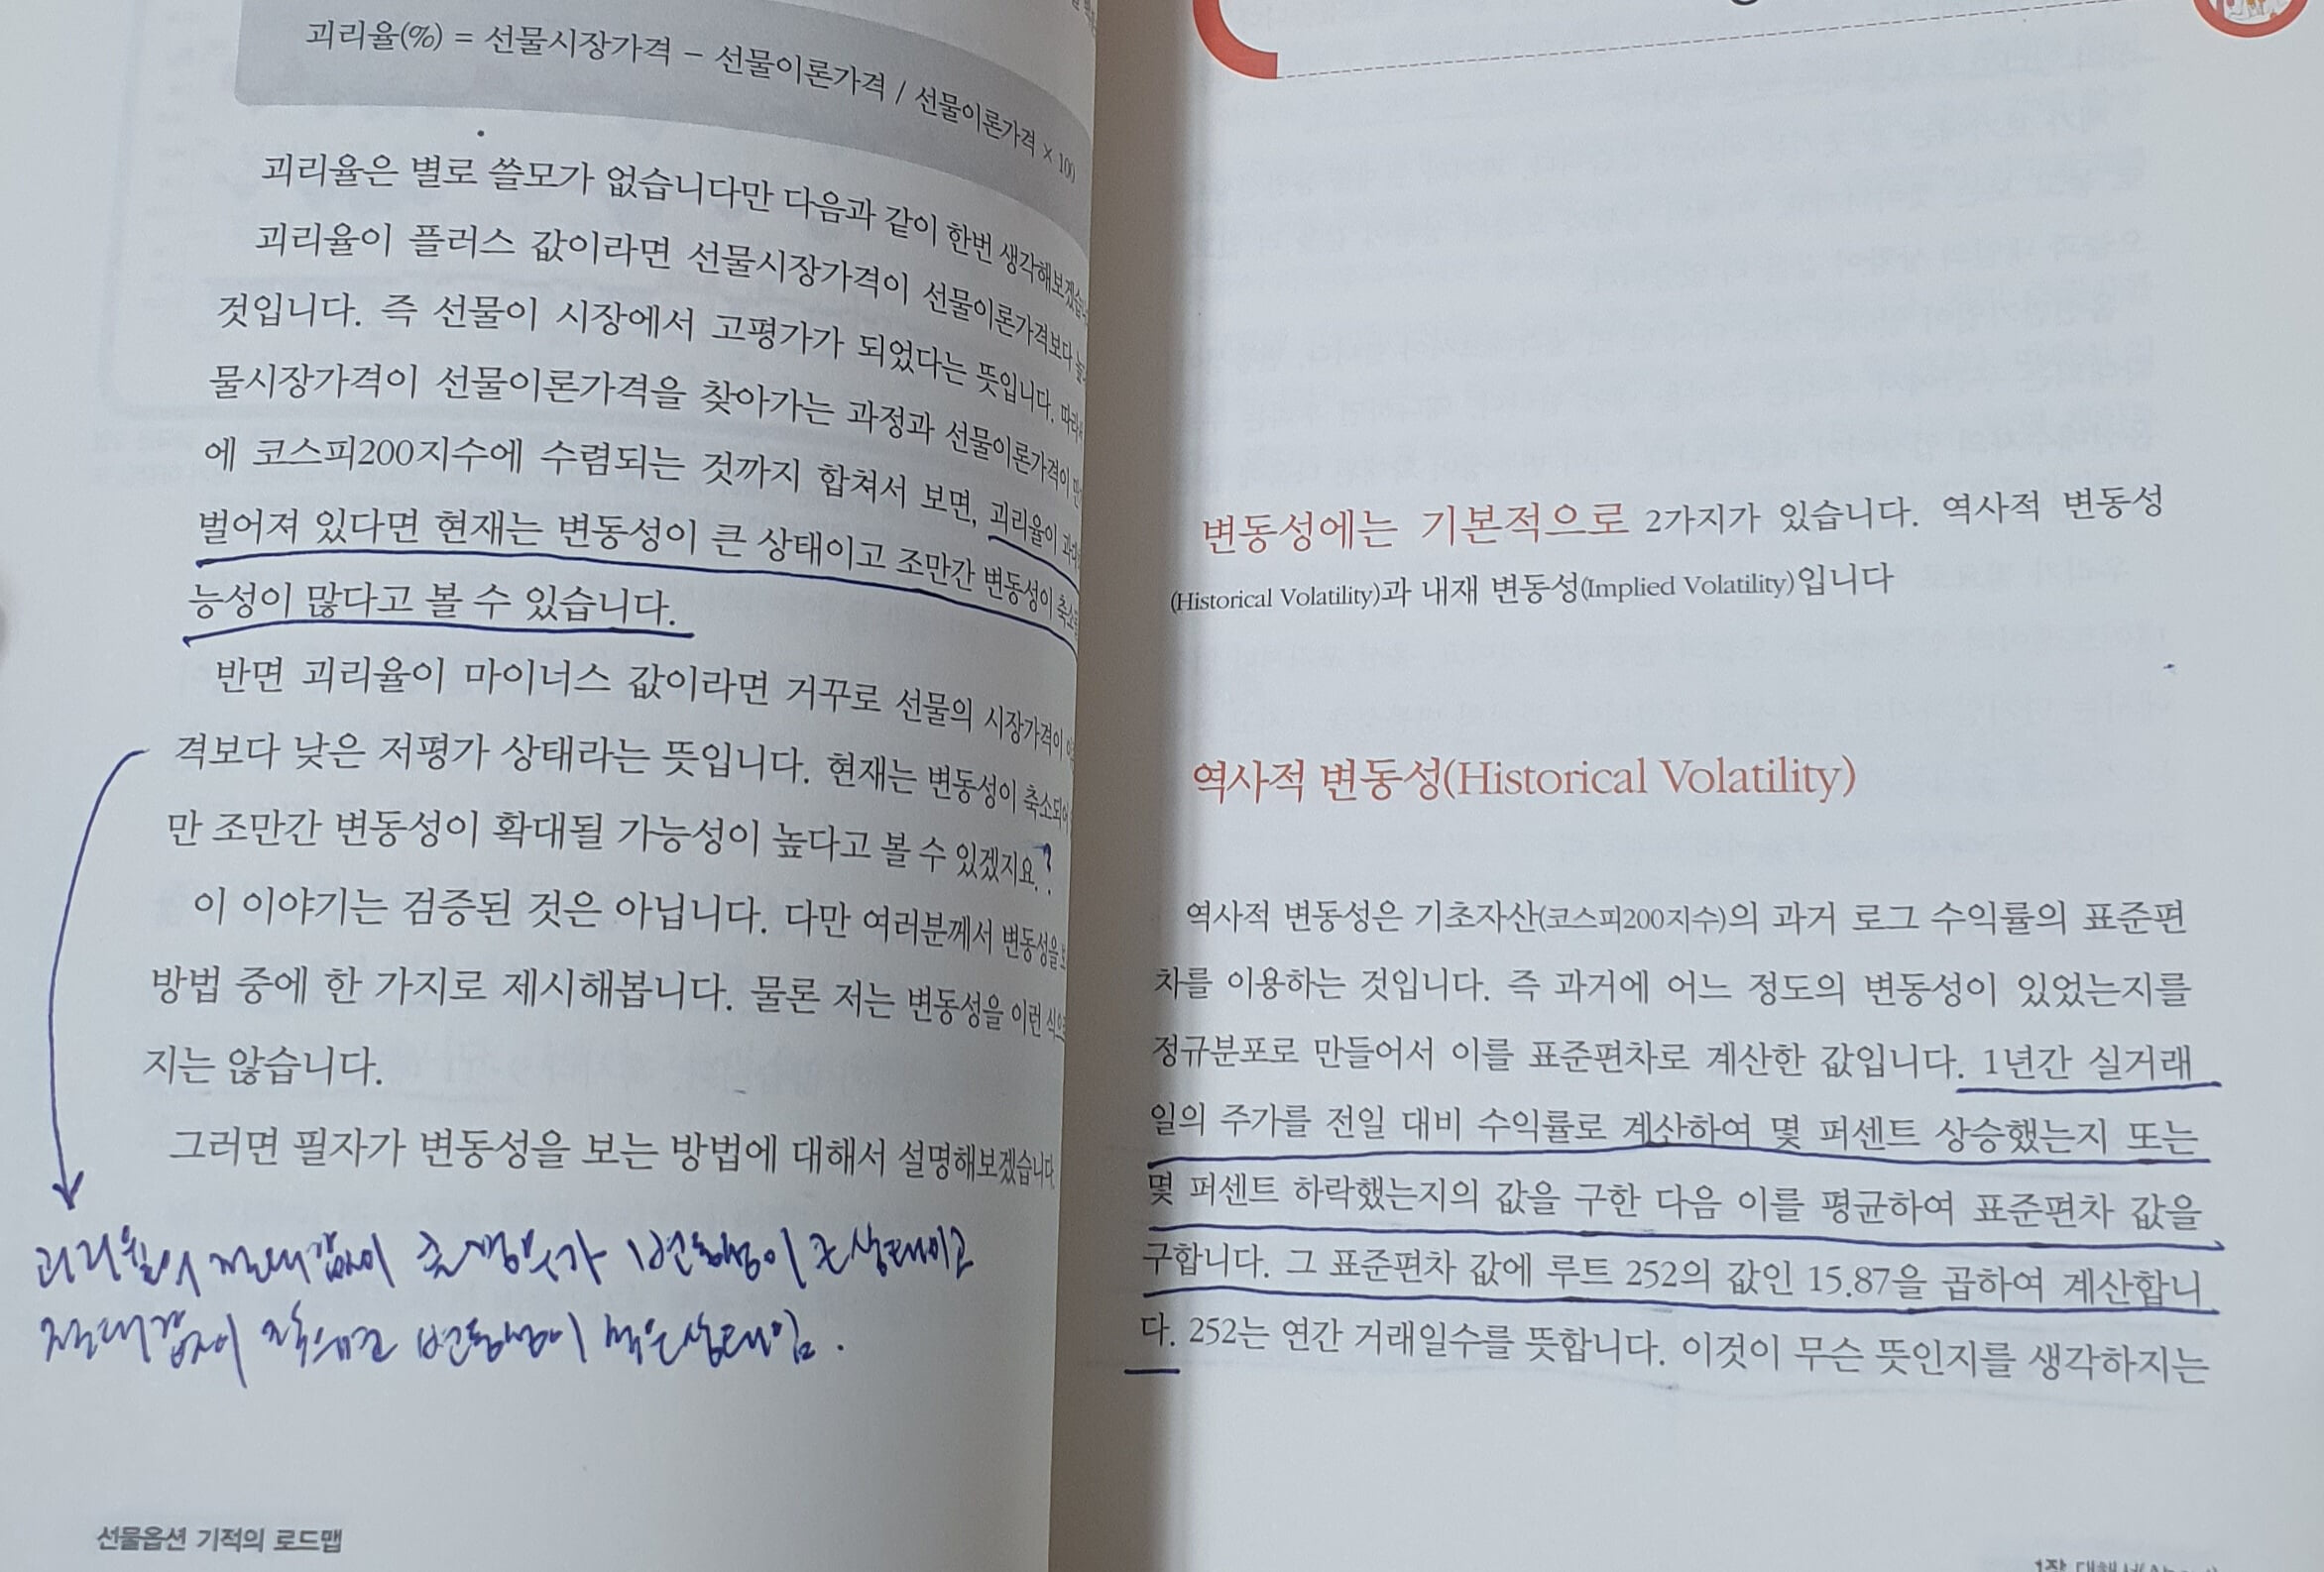 괴리율(%) = 선물시장가격 - 선물이론가격 / 선물이론가격 × 100
괴리율은 별로 쓸모가 없습니다만 다음과 같이 한번 생각해보겠습
괴리율이 플러스 값이라면 선물시장가격이 선물이론가격보다
것입니다. 즉 선물이 시장에서 고평가가 되었다는 뜻입니다. 따라서
물시장가격이 선물이론가격을 찾아가는 과정과 선물이론가격이
에 코스피200지수에 수렴되는 것까지 합쳐서 보면, 괴리율이
벌어져 있다면 현재는 변동성이 큰 상태이고 조만간 변동성이
능성이 많다고 볼 수 있습니다.
반면 괴리율이 마이너스 값이라면 거꾸로 선물의 시장가격이
격보다 낮은 저평가 상태라는 뜻입니다. 현재는 변동성이 축소되어
만 조만간 변동성이 확대될 가능성이 높다고 볼 수 있겠지요.?
이 이야기는 검증된 것은 아닙니다. 다만 여러분께서 변동성을
방법 중에 한 가지로 제시해봅니다. 물론 저는 변동성을 이런 식으로
지는 않습니다.
그러면 필자가 변동성을 보는 방법에 대해서 설명해보겠습니다
괴리율의 절대값이 큰 경우가 변동성이 큰 상태이고
절대값이 작으면 변동성이 적은 상태임.
선물옵션 기적의 로드맵
변동성에는 기본적으로 2가지가 있습니다. 역사적 변동성
(Historical Volatility)과 내재 변동성(Implied Volatility)입니다
역사적 변동성(Historical Volatility)
역사적 변동성은 기초자산(코스피200지수)의 과거 로그 수익률의 표준편
차를 이용하는 것입니다. 즉 과거에 어느 정도의 변동성이 있었는지를
정규분포로 만들어서 이를 표준편차로 계산한 값입니다. 1년간 실거래
일의 주가를 전일 대비 수익률로 계산하여 몇 퍼센트 상승했는지 또는
몇 퍼센트 하락했는지의 값을 구한 다음 이를 평균하여 표준편차 값을
구합니다. 그 표준편차 값에 루트 252의 값인 15.87을 곱하여 계산합니
다. 252는 연간 거래일수를 뜻합니다. 이것이 무슨 뜻인지를 생각하지는